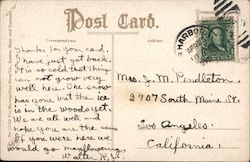 Post Card.
Correspondence
Address
HARBOR
Thanks for your card.
I have just got back.
It is so cold that things
can not grow very
well here. The snow
has gone but the ice
is in the woods yet.
We are all well and
hope you are the same
If you were here we
would go mayflowering.
Walter R.
Mrs. J. M. Pendleton
2907 South Main St.
Los Angeles.
California.